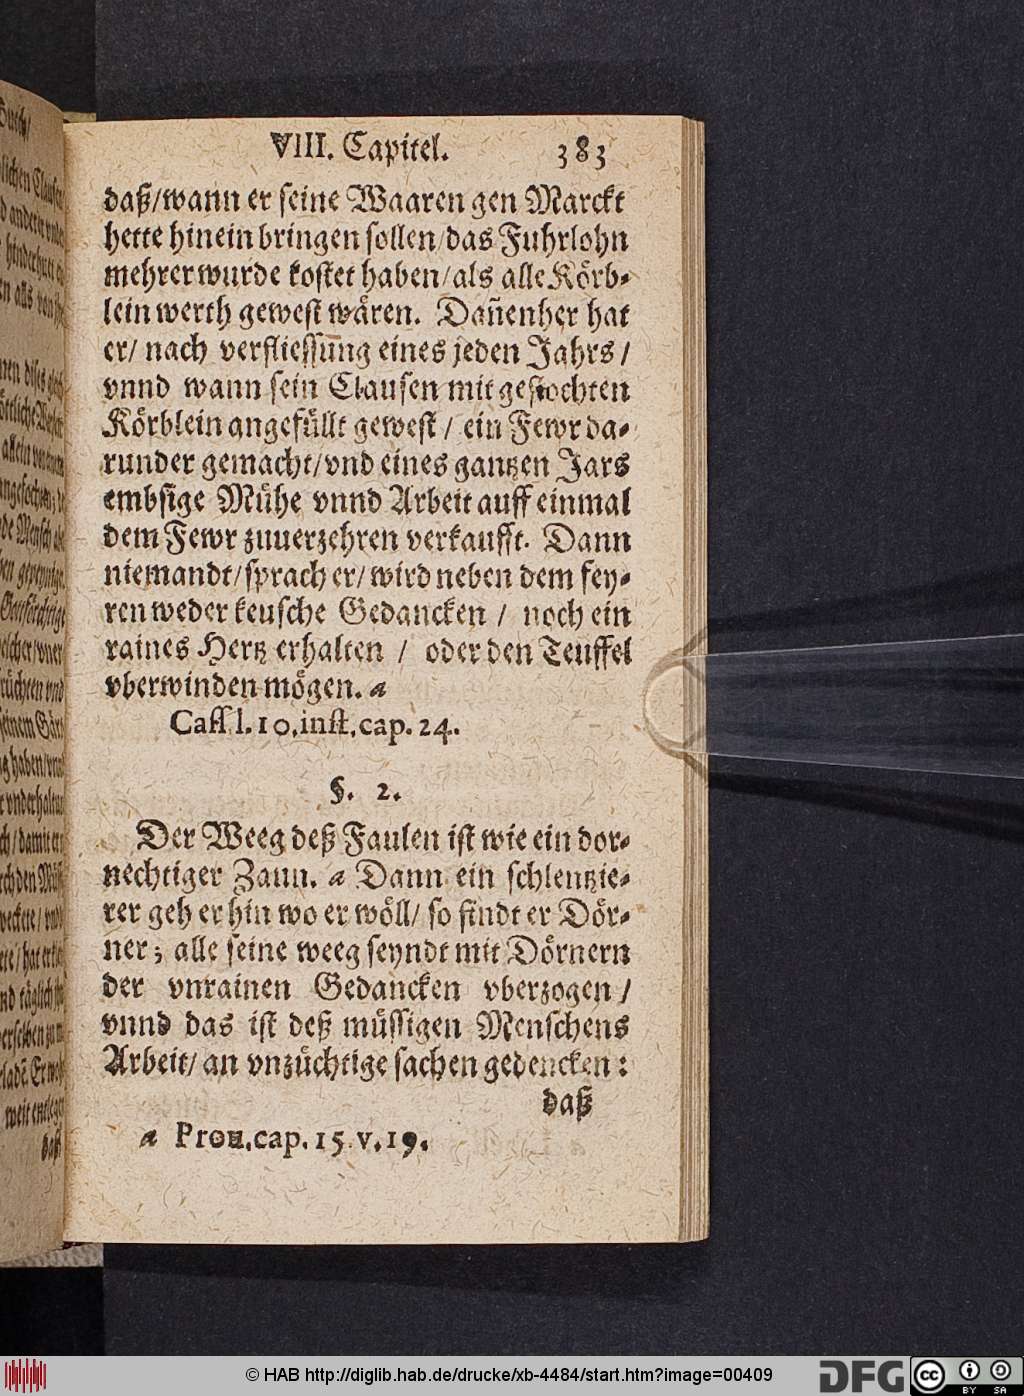 VIII. Capitel. 383
daß/wann er seine Waaren gen Marckt
hette hinein bringen sollen/das Fuhrlohn
mehrer wurde kostet haben/als alle Körb-
lein werth gewest wären. Dan̄enher hat
er/ nach verfliessun̄g eines jeden Jahrs /
vnnd wann sein Clausen mit geflochten
Körblein angefüllt gewest / ein Fewr da-
runder gemacht/vnd eines gantzen Jars
embsige Mühe vnnd Arbeit auff einmal
dem Fewr zuuerzehren verkaufft. Dann
niemandt/sprach er/wird neben dem fey-
ren weder keusche Gedancken / noch ein
raines Hertz erhalten / oder den Teuffel
vberwinden mögen. a
Cass l. 10.inst.cap. 24.
§. 2.
Der Weeg deß Faulen ist wie ein dor-
nechtiger Zaun. a Dann ein schlentzie-
rer geh er hin wo er wöll/ so findt er Dör-
ner; alle seine weeg seyndt mit Dörnern
der vnrainen Gedancken vberzogen /
vnnd das ist deß müssigen Menschens
Arbeit/ an vnzüchtige sachen gedencken:
daß
a Prou.cap. 15 v.19.
© HAB http://diglib.hab.de/drucke/xb-4484/start.htm?image=00409
DFG
cc
BY SA